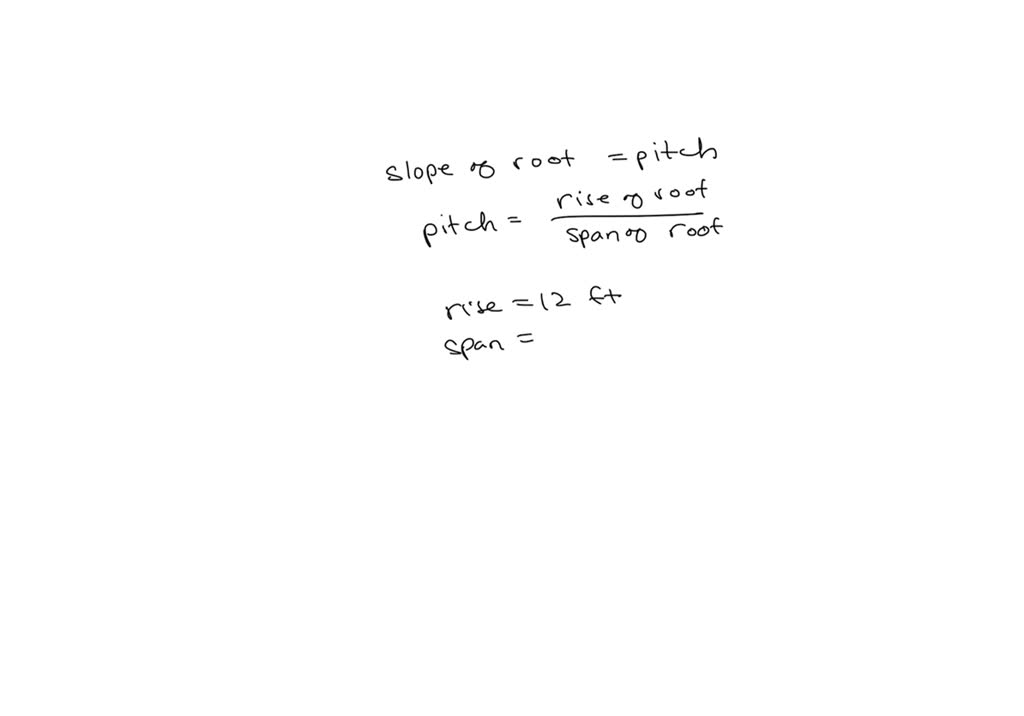 slope of roof = pitch
pitch = rise of roof / span of roof
rise = 12 ft
span =